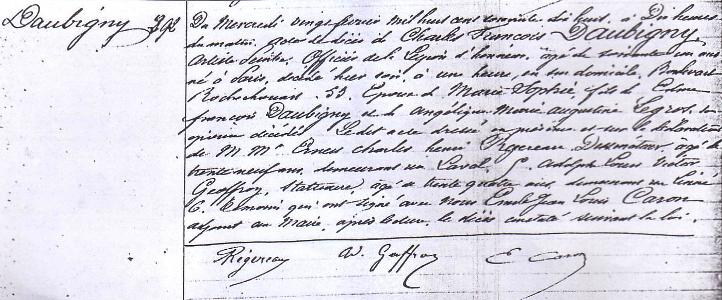 Daubigny 392
Du Mercredi vingt février mil huit cent soixante dix huit, à Dix heures
du matin, acte de décès de Charles François Daubigny
artiste peintre, Officier de la Légion d'honneur, âgé de soixante un ans
né à Paris, décédé hier soir, à une heure, en son domicile, Boulevart
Rochechouart 59. Epoux de Marie Sophie fils de
françois Daubigny et de Angélique Marie augustine Legros, son
épouse décédés. Le dit acte dressé en présence et sur la déclaration
de M Mrs Ernest charles henri Rigereau Dessinateur, âgé de
trente neuf ans, demeurant rue Laval, 5. Adolphe Louis Victor
Geoffroy, Statuaire, âgé de trente quatre ans, demeurant rue
6. Témoins qui ont signé avec nous Emile Jean Louis Caron
adjoint au Maire, après lecture, le décès constaté suivant la loi.
Rigereau Ad. Geoffroy E Caron